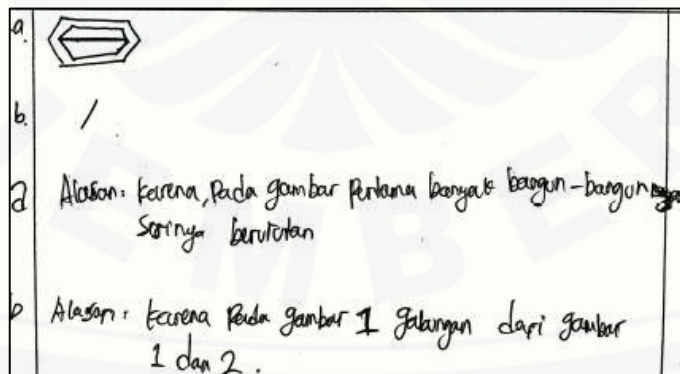 a.
b. /
a Alasan: karena, Pada gambar Pertama banyak bangun-bangun
Serinya berurutan
b Alasan: karena Pada gambar 1 gabungan dari gambar
1 dan 2.
JEMBER